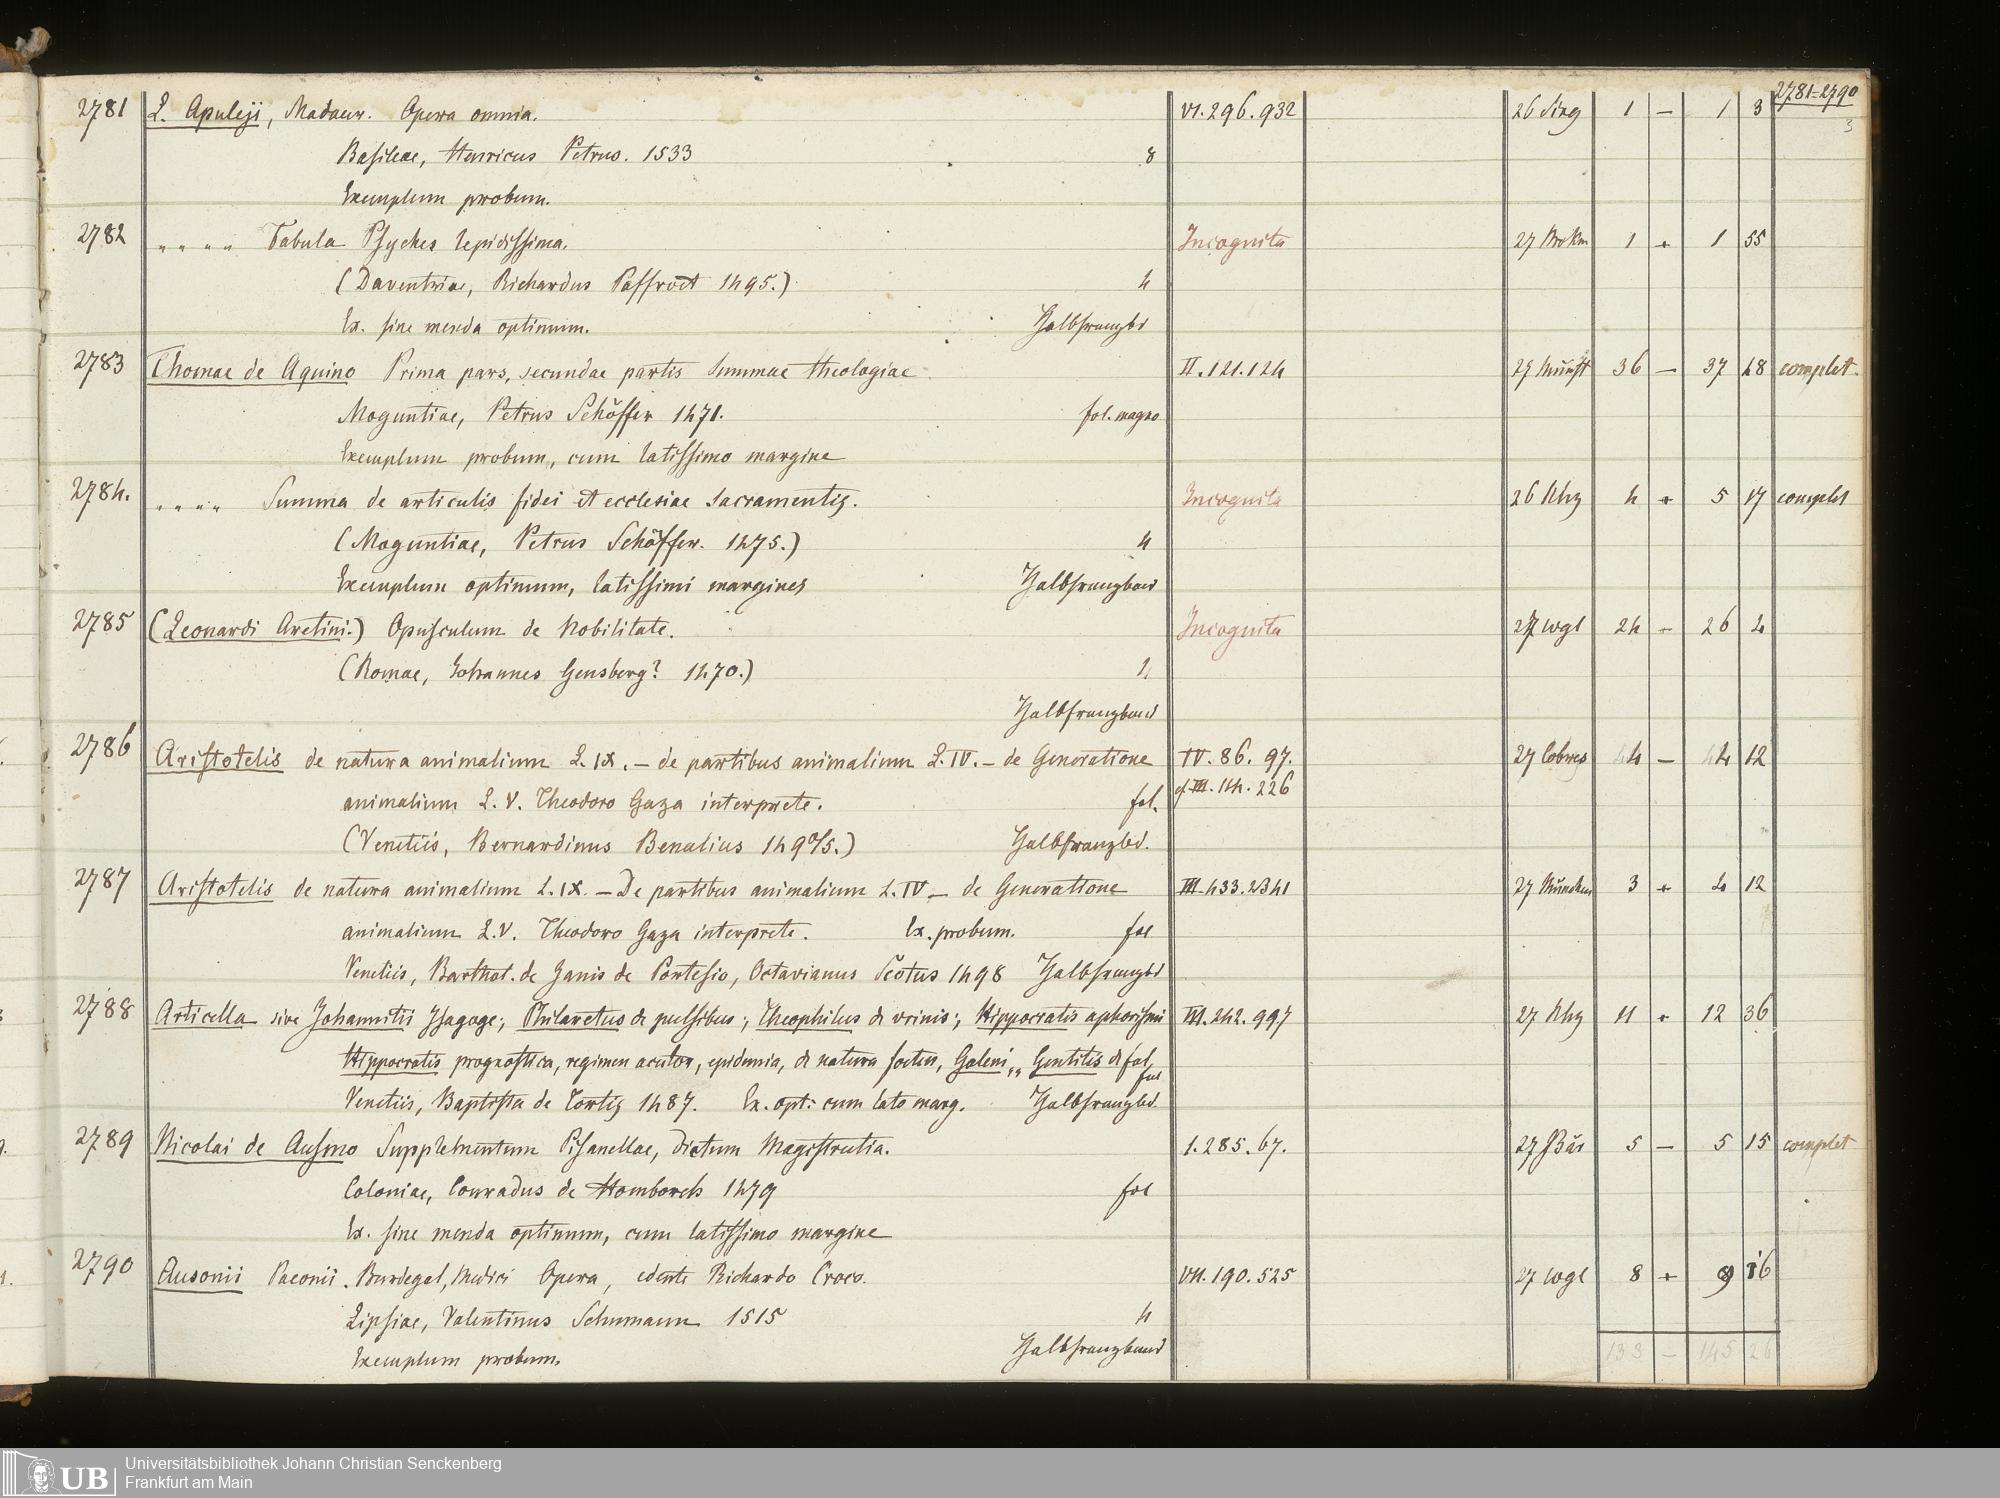 2781-2790
3
2781 L. Apuleji, Madaur. Opera omnia. VI. 296. 932 26 Sizg 1 — 1 3
Basileae, Henricus Petrus. 1533 8
Exemplum probum.
2782 " " " " Fabula Psyches lepidissima. Incognita 27 1 + 1 55
(Daventriae, Richardus Paffroet 1495.) 4
Ex. sine menda optimum. Halbfranzbd
2783 Thomae de Aquino Prima pars, secundae partis Summae theologiae II. 121. 124 36 — 37 48 complet.
Moguntiae, Petrus Schöffer 1471. fol. magno
Exemplum probum, cum latissimo margine
2784. " " " " Summa de articulis fidei et ecclesiae sacramentis. Incognita 26 Khg 4 + 5 17 complet
(Moguntiae, Petrus Schöffer. 1475.) 4
Exemplum optimum, latissimi margines Halbfranzband
2785 (Leonardi Aretini.) Opusculum de Nobilitate. Incognita 27 wgl 24 — 26 2
(Romae, Johannes Gensberg? 1470.) 4
Halbfranzband
2786 Aristotelis de natura animalium L. IX. — de partibus animalium L. IV. — de Generatione IV. 86. 97. 27 Cobres 44 — 44 12
animalium L. V. Theodoro Gaza interprete. fol. cf III. 114. 226
(Venetiis, Bernardinus Benalius 149 /5.) Halbfranzbd.
2787 Aristotelis de natura animalium L. IX. — De partibus animalium L. IV — de Generatione III. 433. 2341 27 München 3 + 4 12
animalium L. V. Theodoro Gaza interprete. Ex. probum. fol
Venetiis, Barthol. de Zanis de Portesio, Octavianus Scotus 1498 Halbfranzbd
2788 Articella sive Johannitii Isagoge; Philaretus de pulsibus; Theophilus de urinis; Hippocratis aphorismi III. 242. 997 27 Khg 11 + 12 36
Hippocratis prognostica, regimen acutor, epidemia, de natura foetus, Galeni " " Gentilis de ful, fol
Venetiis, Baptista de Tortis 1487. Ex. opt: cum lato marg. Halbfranzbd.
2789 Nicolai de Ausmo Supplementum Pisanellae, dictum Magistrutia. I. 285. 67. 27 Bär 5 — 5 15 complet
Coloniae, Conradus de Homborch 1479 fol
Ex. sine menda optimum, cum latissimo margine
2790 Ausonii Paeonii. Burdegal, Medici Opera, edente Richardo Croco. VII. 190. 525 27 wgl 8 + 9 16
Lipsiae, Valentinus Schumann 1515 4
Exemplum probum. Halbfranzband
133 — 145 26
UB Universitätsbibliothek Johann Christian Senckenberg
Frankfurt am Main